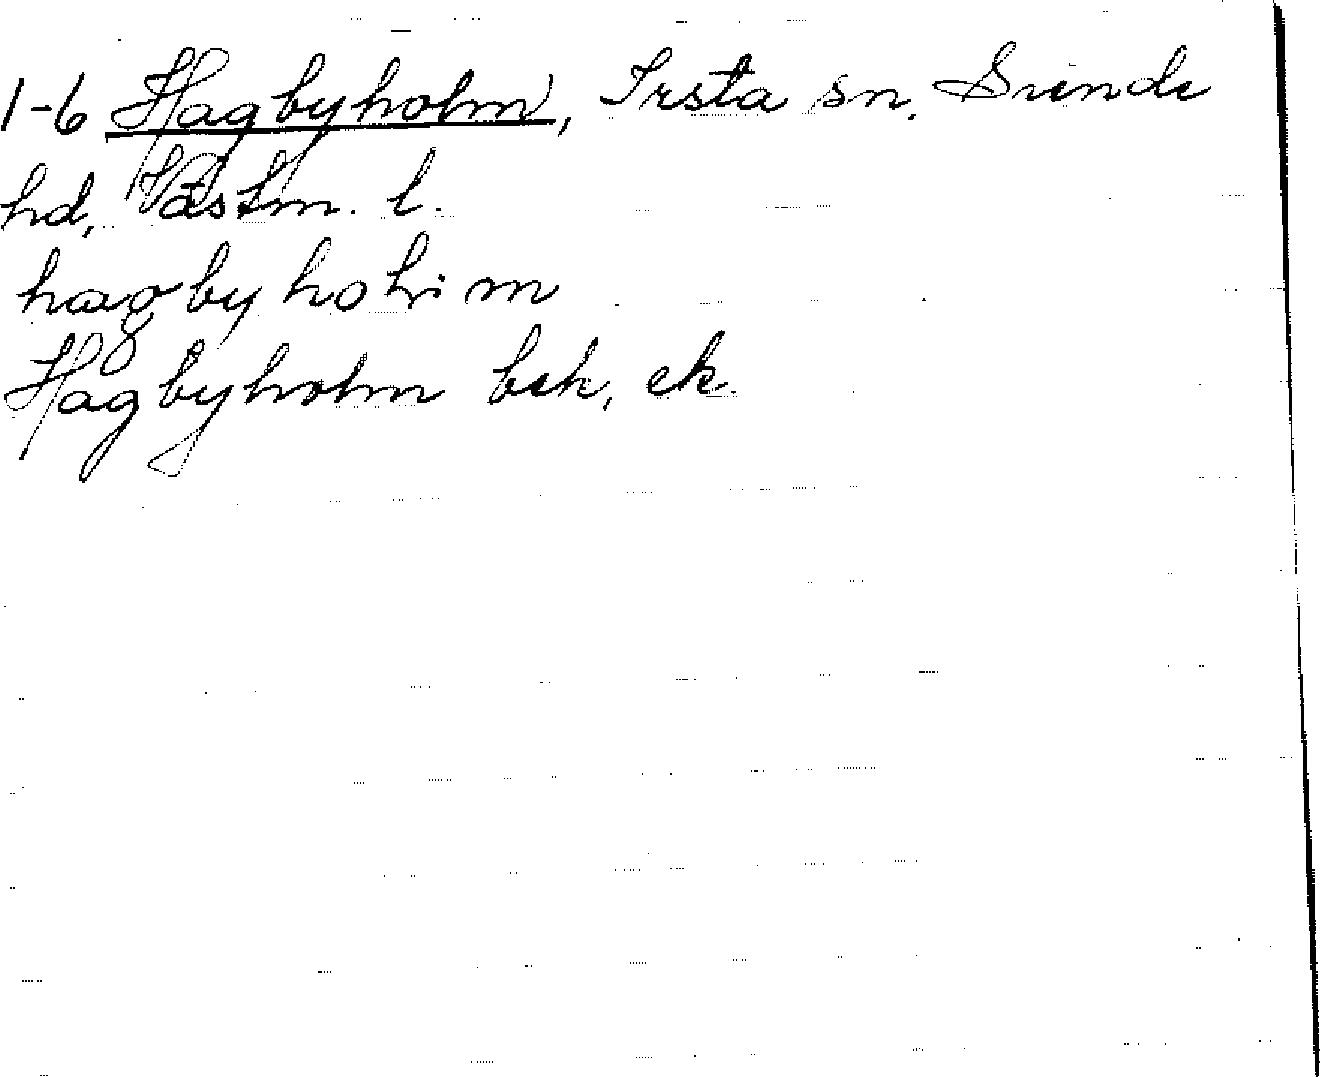 1-6 Hagbyholm, Irsta sn. Siende
hd, Västm. l.
hagbyholm
Hagbyholm bek, ek.